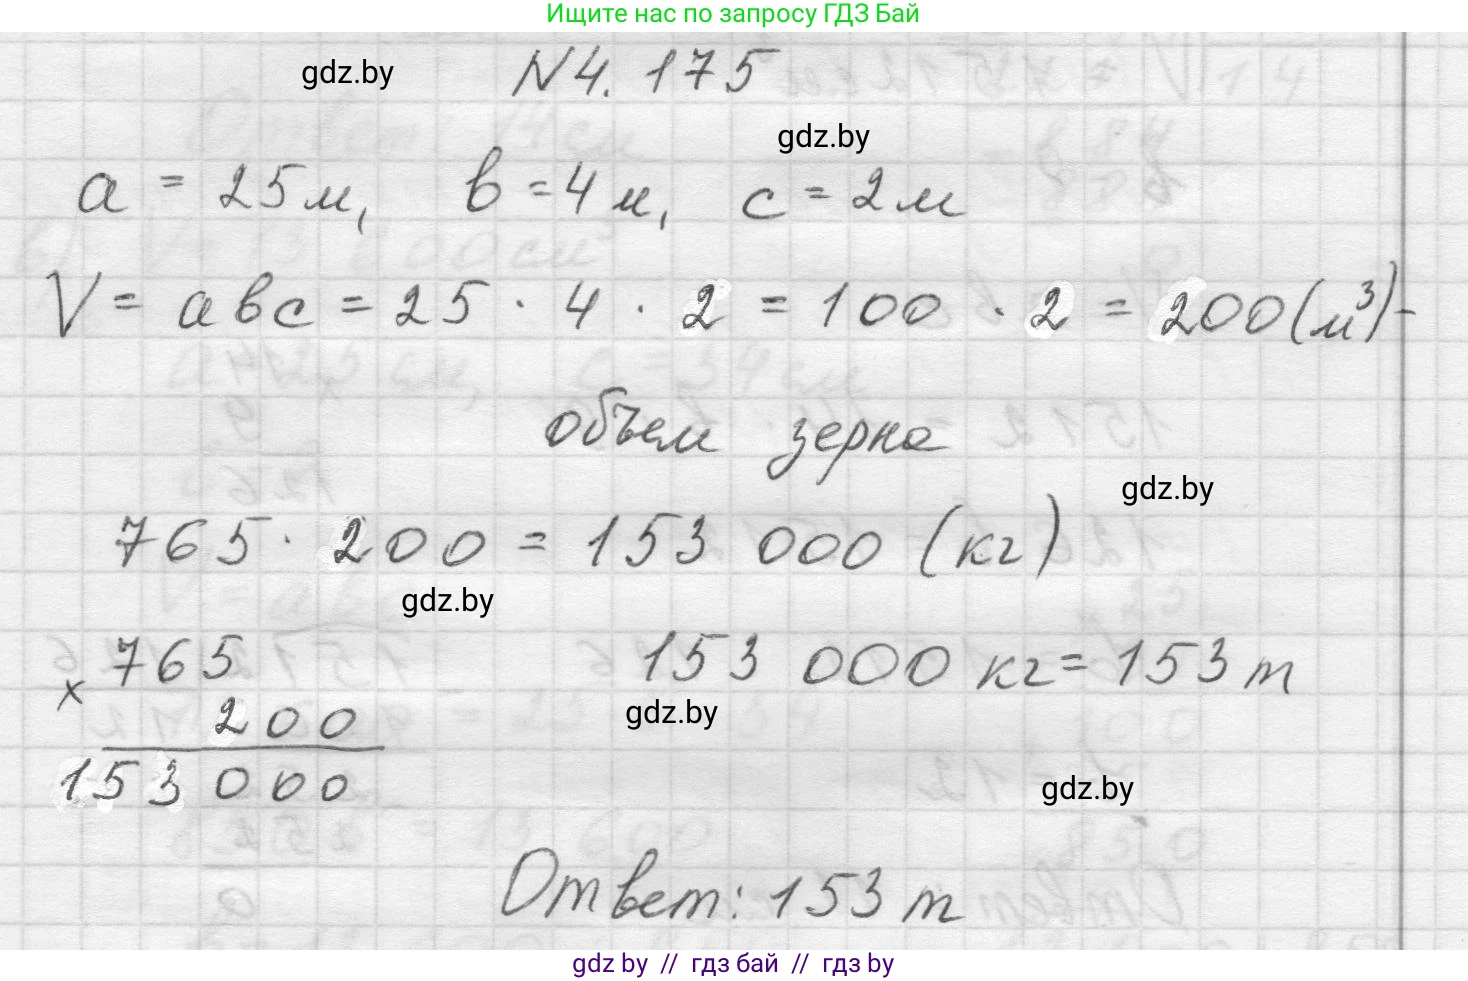 Ищите нас по запросу ГДЗ Бай
gdz.by
N4.175
gdz.by
a = 25м, в = 4м, с = 2м
V = авс = 25 · 4 · 2 = 100 · 2 = 200 (м³) -
объем зерна
gdz.by
765 · 200 = 153 000 (кг)
gdz.by
× 765
200
153 000
153 000 кг = 153 т
gdz.by
gdz.by
Ответ: 153 т
gdz by // гдз бай // гдз by